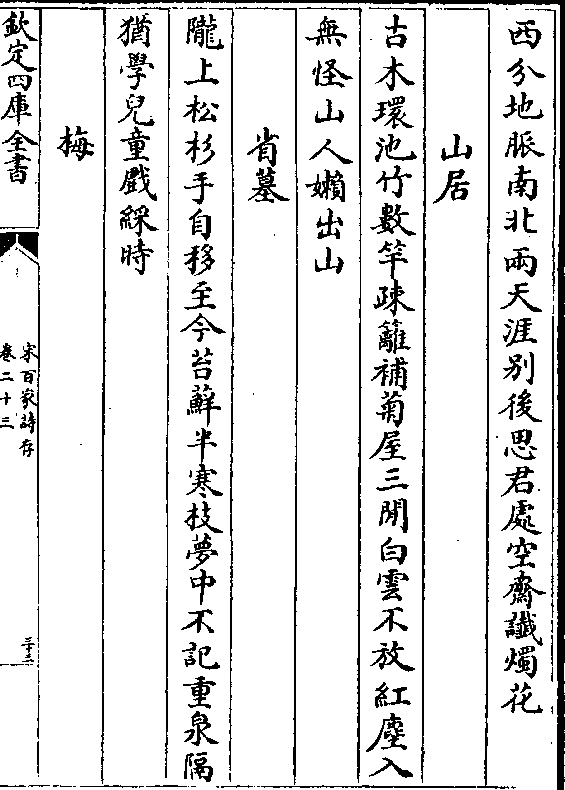 西分地脈南北兩天涯別後思君處空齋讖燭花
山居
古木環池竹數竿疎籬補菊屋三間白雲不放紅塵入
無怪山人嬾出山
省墓
隴上松杉手自移至今苔蘚半寒枝夢中不記重泉隔
猶學兒童戲綵時
梅
欽定四庫全書
宋百家詩存
卷二十三
三十二